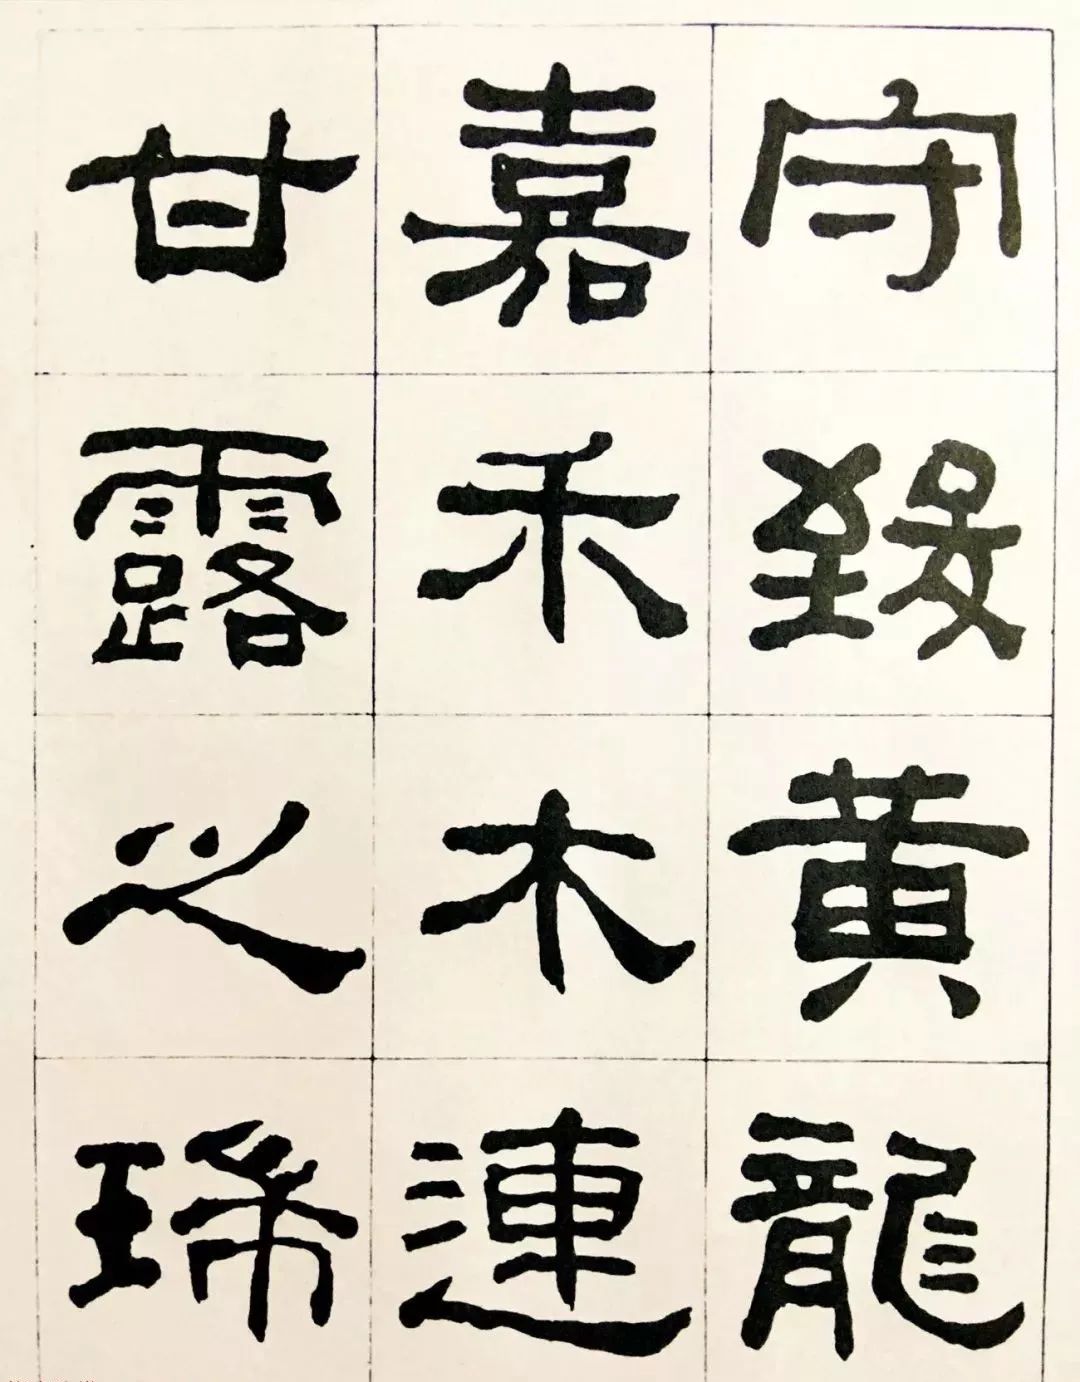 守致黄龍
嘉禾木連
甘露之珎